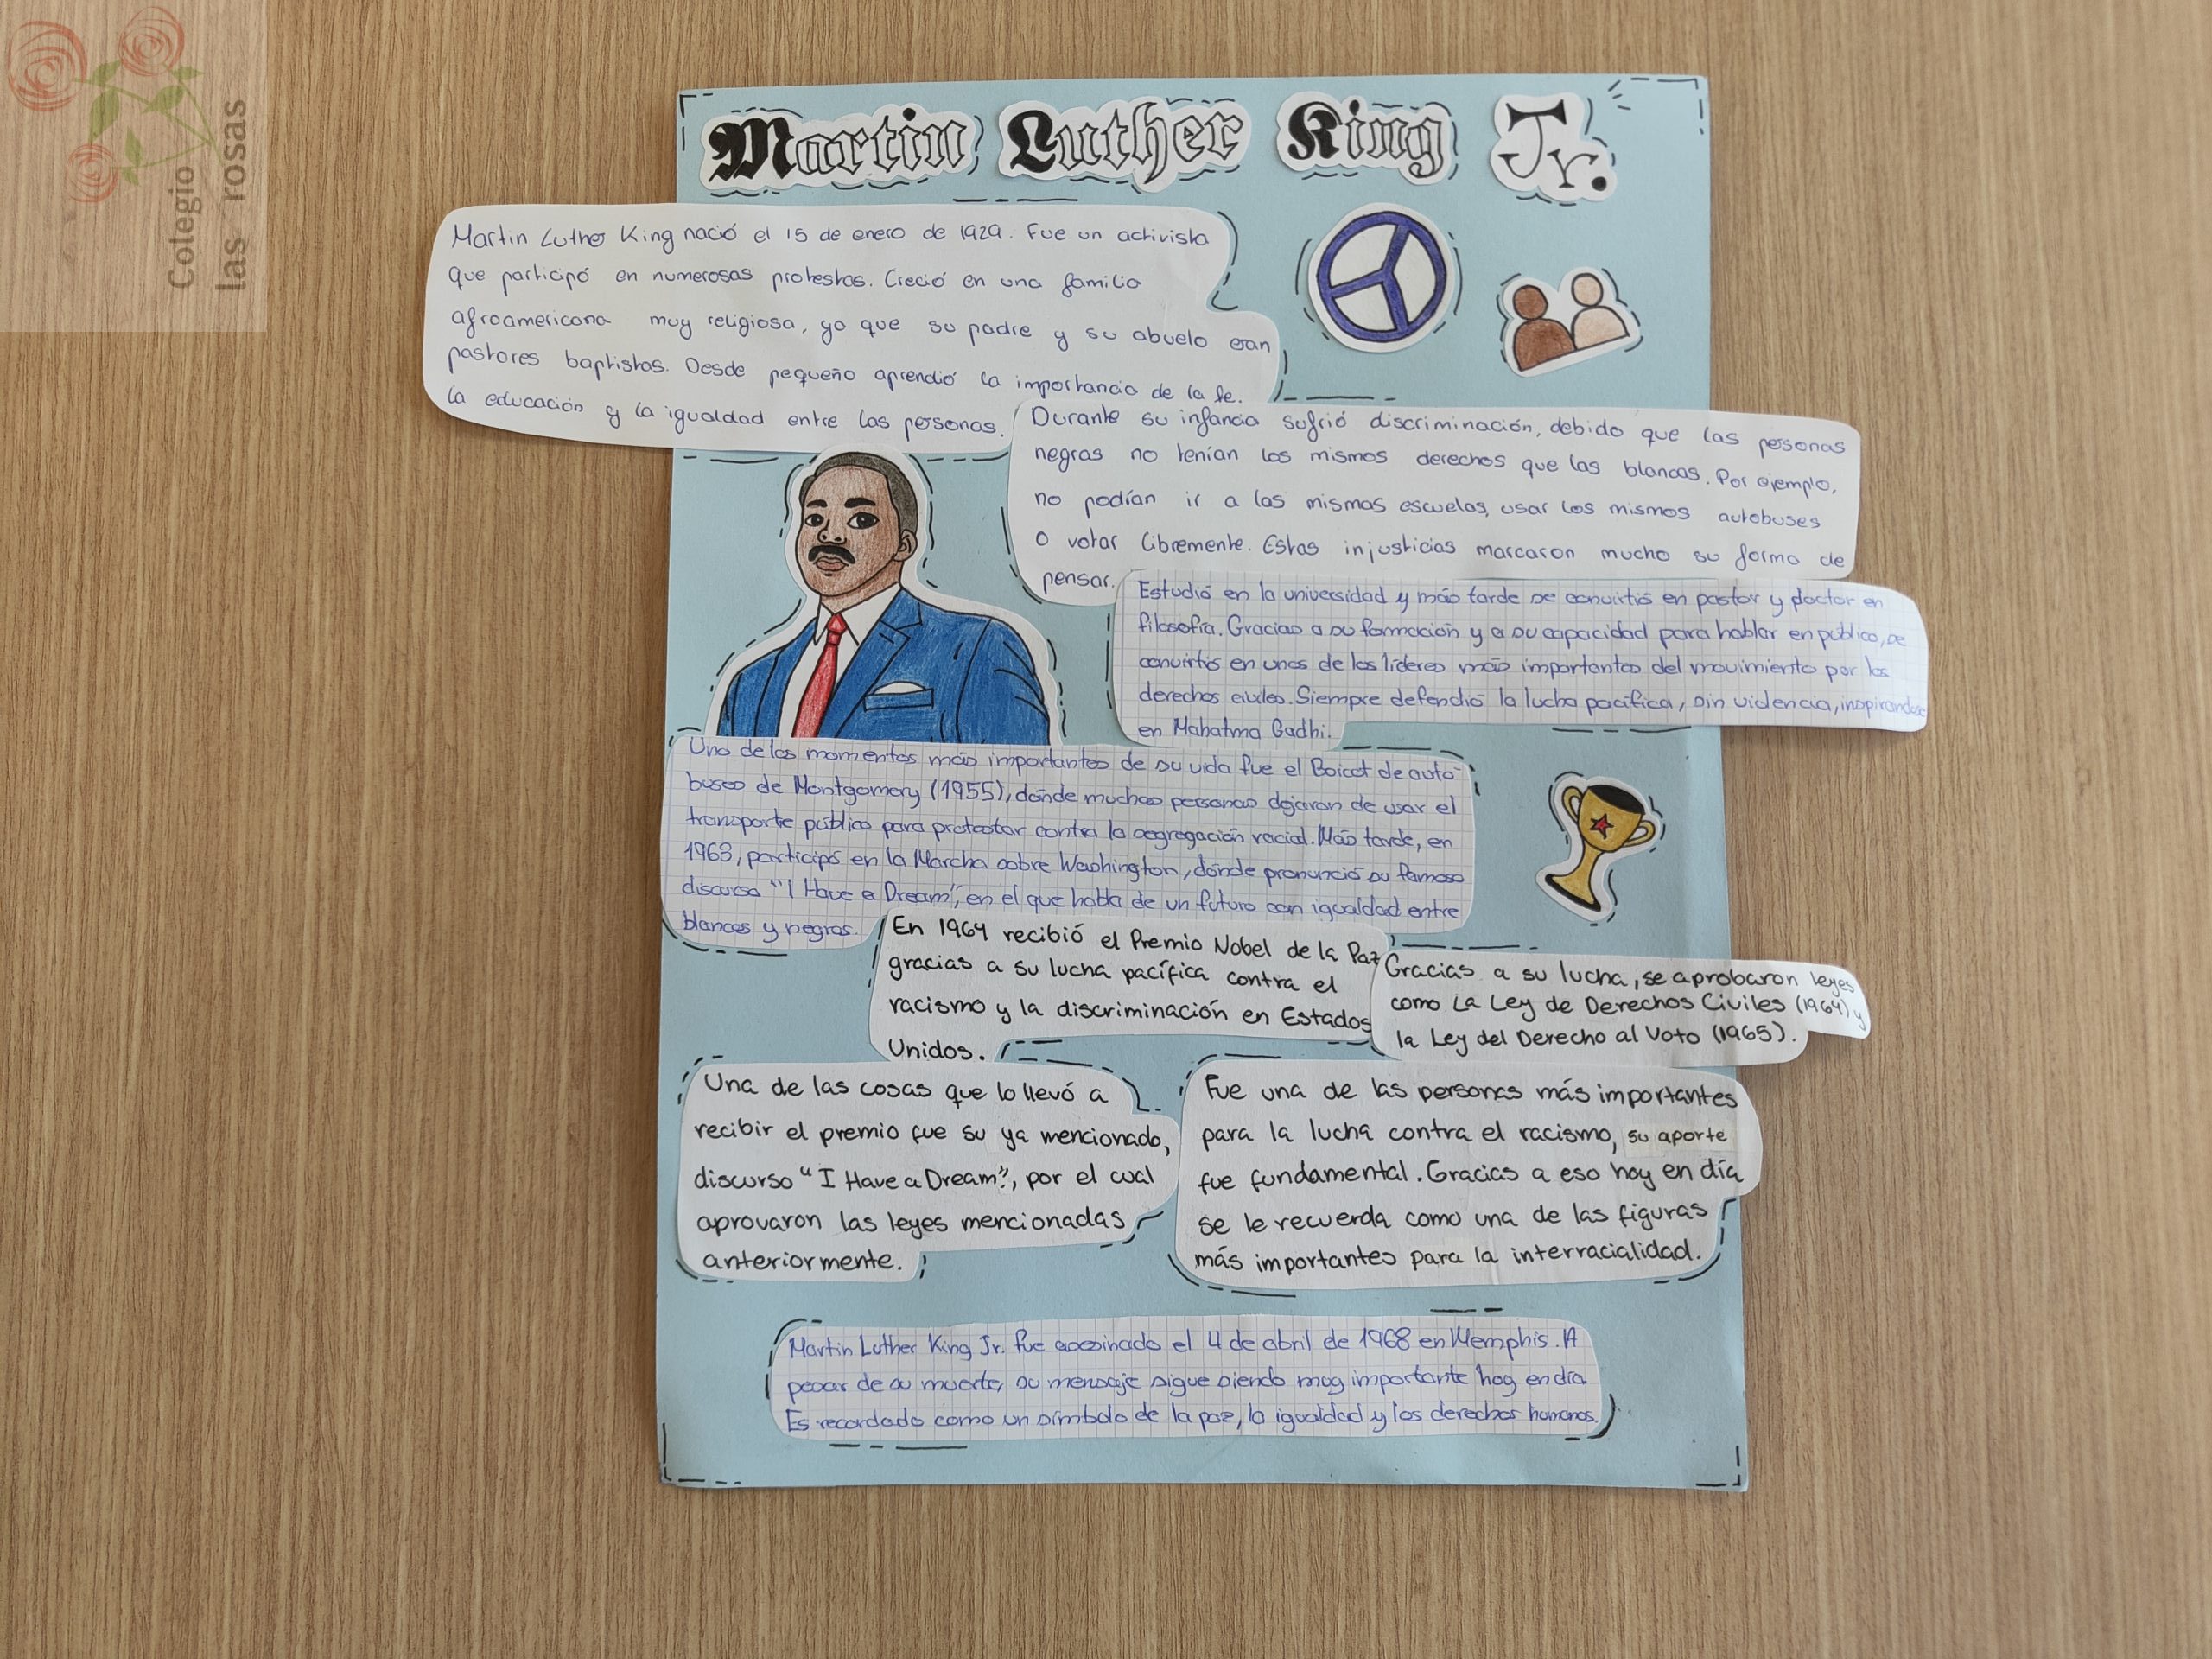 Colegio
las rosas
Martin Luther King Jr.
Martin Luther King nació el 15 de enero de 1929. Fue un activista
que participó en numerosas protestas. Creció en una familia
afroamericana muy religiosa, ya que su padre y su abuelo eran
pastores baptistas. Desde pequeño aprendió la importancia de la fe.
la educación y la igualdad entre las personas.
Durante su infancia sufrió discriminación, debido que las personas
negras no tenían los mismos derechos que las blancas. Por ejemplo,
no podían ir a las mismas escuelas, usar los mismos autobuses
o votar libremente. Estas injusticias marcaron mucho su forma de
pensar.
Estudió en la universidad y más tarde se convirtió en pastor y doctor en
filosofía. Gracias a su formación y a su capacidad para hablar en público, se
convirtió en unos de los líderes más importantes del movimiento por los
derechos civiles. Siempre defendió la lucha pacífica, sin violencia, inspirandose
en Mahatma Gadhi.
Uno de los momentos más importantes de su vida fue el Boicot de auto-
buses de Montgomery (1955), dónde muchas personas dejaron de usar el
transporte público para protestar contra la segregación racial. Más tarde, en
1963, participó en la Marcha sobre Washington, dónde pronunció su famoso
discurso "I Have a Dream", en el que habla de un futuro con igualdad entre
blancos y negros.
En 1964 recibió el Premio Nobel de la Paz
gracias a su lucha pacífica contra el
racismo y la discriminación en Estados
Unidos.
Gracias a su lucha, se aprobaron leyes
como La Ley de Derechos Civiles (1964) y
la Ley del Derecho al Voto (1965).
Una de las cosas que lo llevó a
recibir el premio fue su ya mencionado,
discurso "I Have a Dream", por el cual
aprovaron las leyes mencionadas
anteriormente.
Fue una de las personas más importantes
para la lucha contra el racismo, su aporte
fue fundamental. Gracias a eso hoy en día
se le recuerda como una de las figuras
más importantes para la interracialidad.
Martin Luther King Jr. fue asesinado el 4 de abril de 1968 en Memphis. A
pesar de su muerte, su mensaje sigue siendo muy importante hoy en día.
Es recordado como un símbolo de la paz, la igualdad y los derechos humanos.